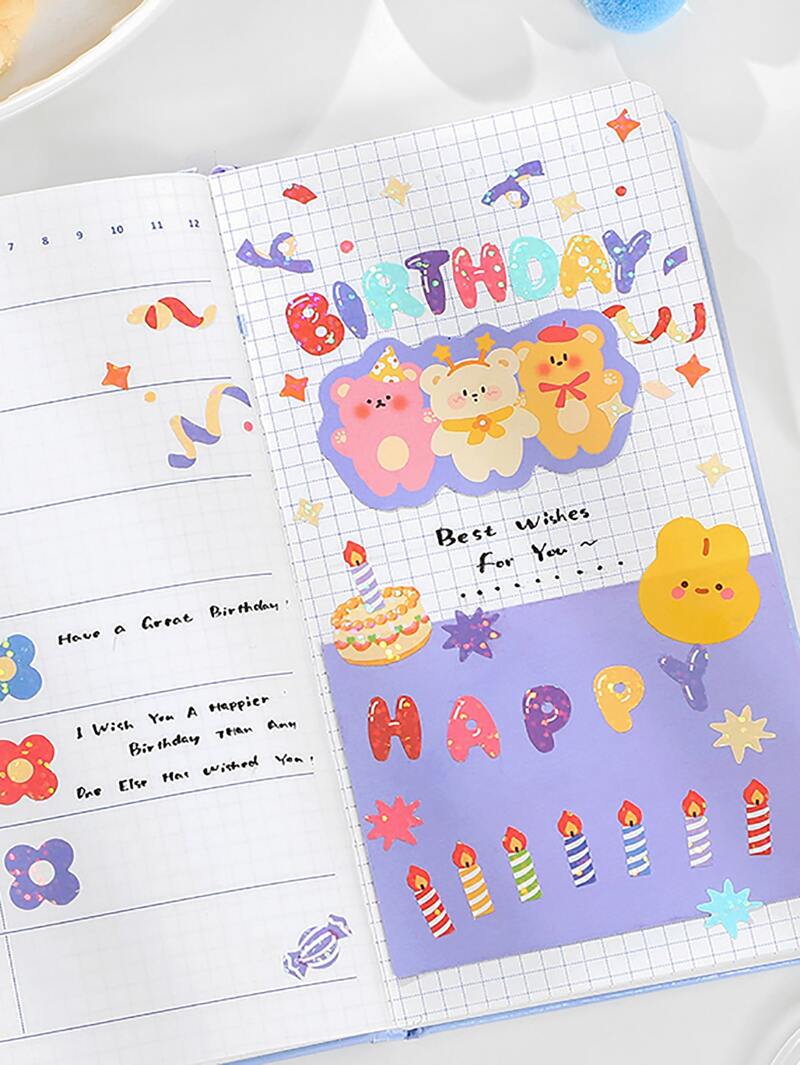 7 8 9 10 11 12
Have a Great Birthday.
I Wish You A Happier
Birthday Than Any
One Else Has Wished You.
BIRTHDAY
Best Wishes
For You ~
HAPPY